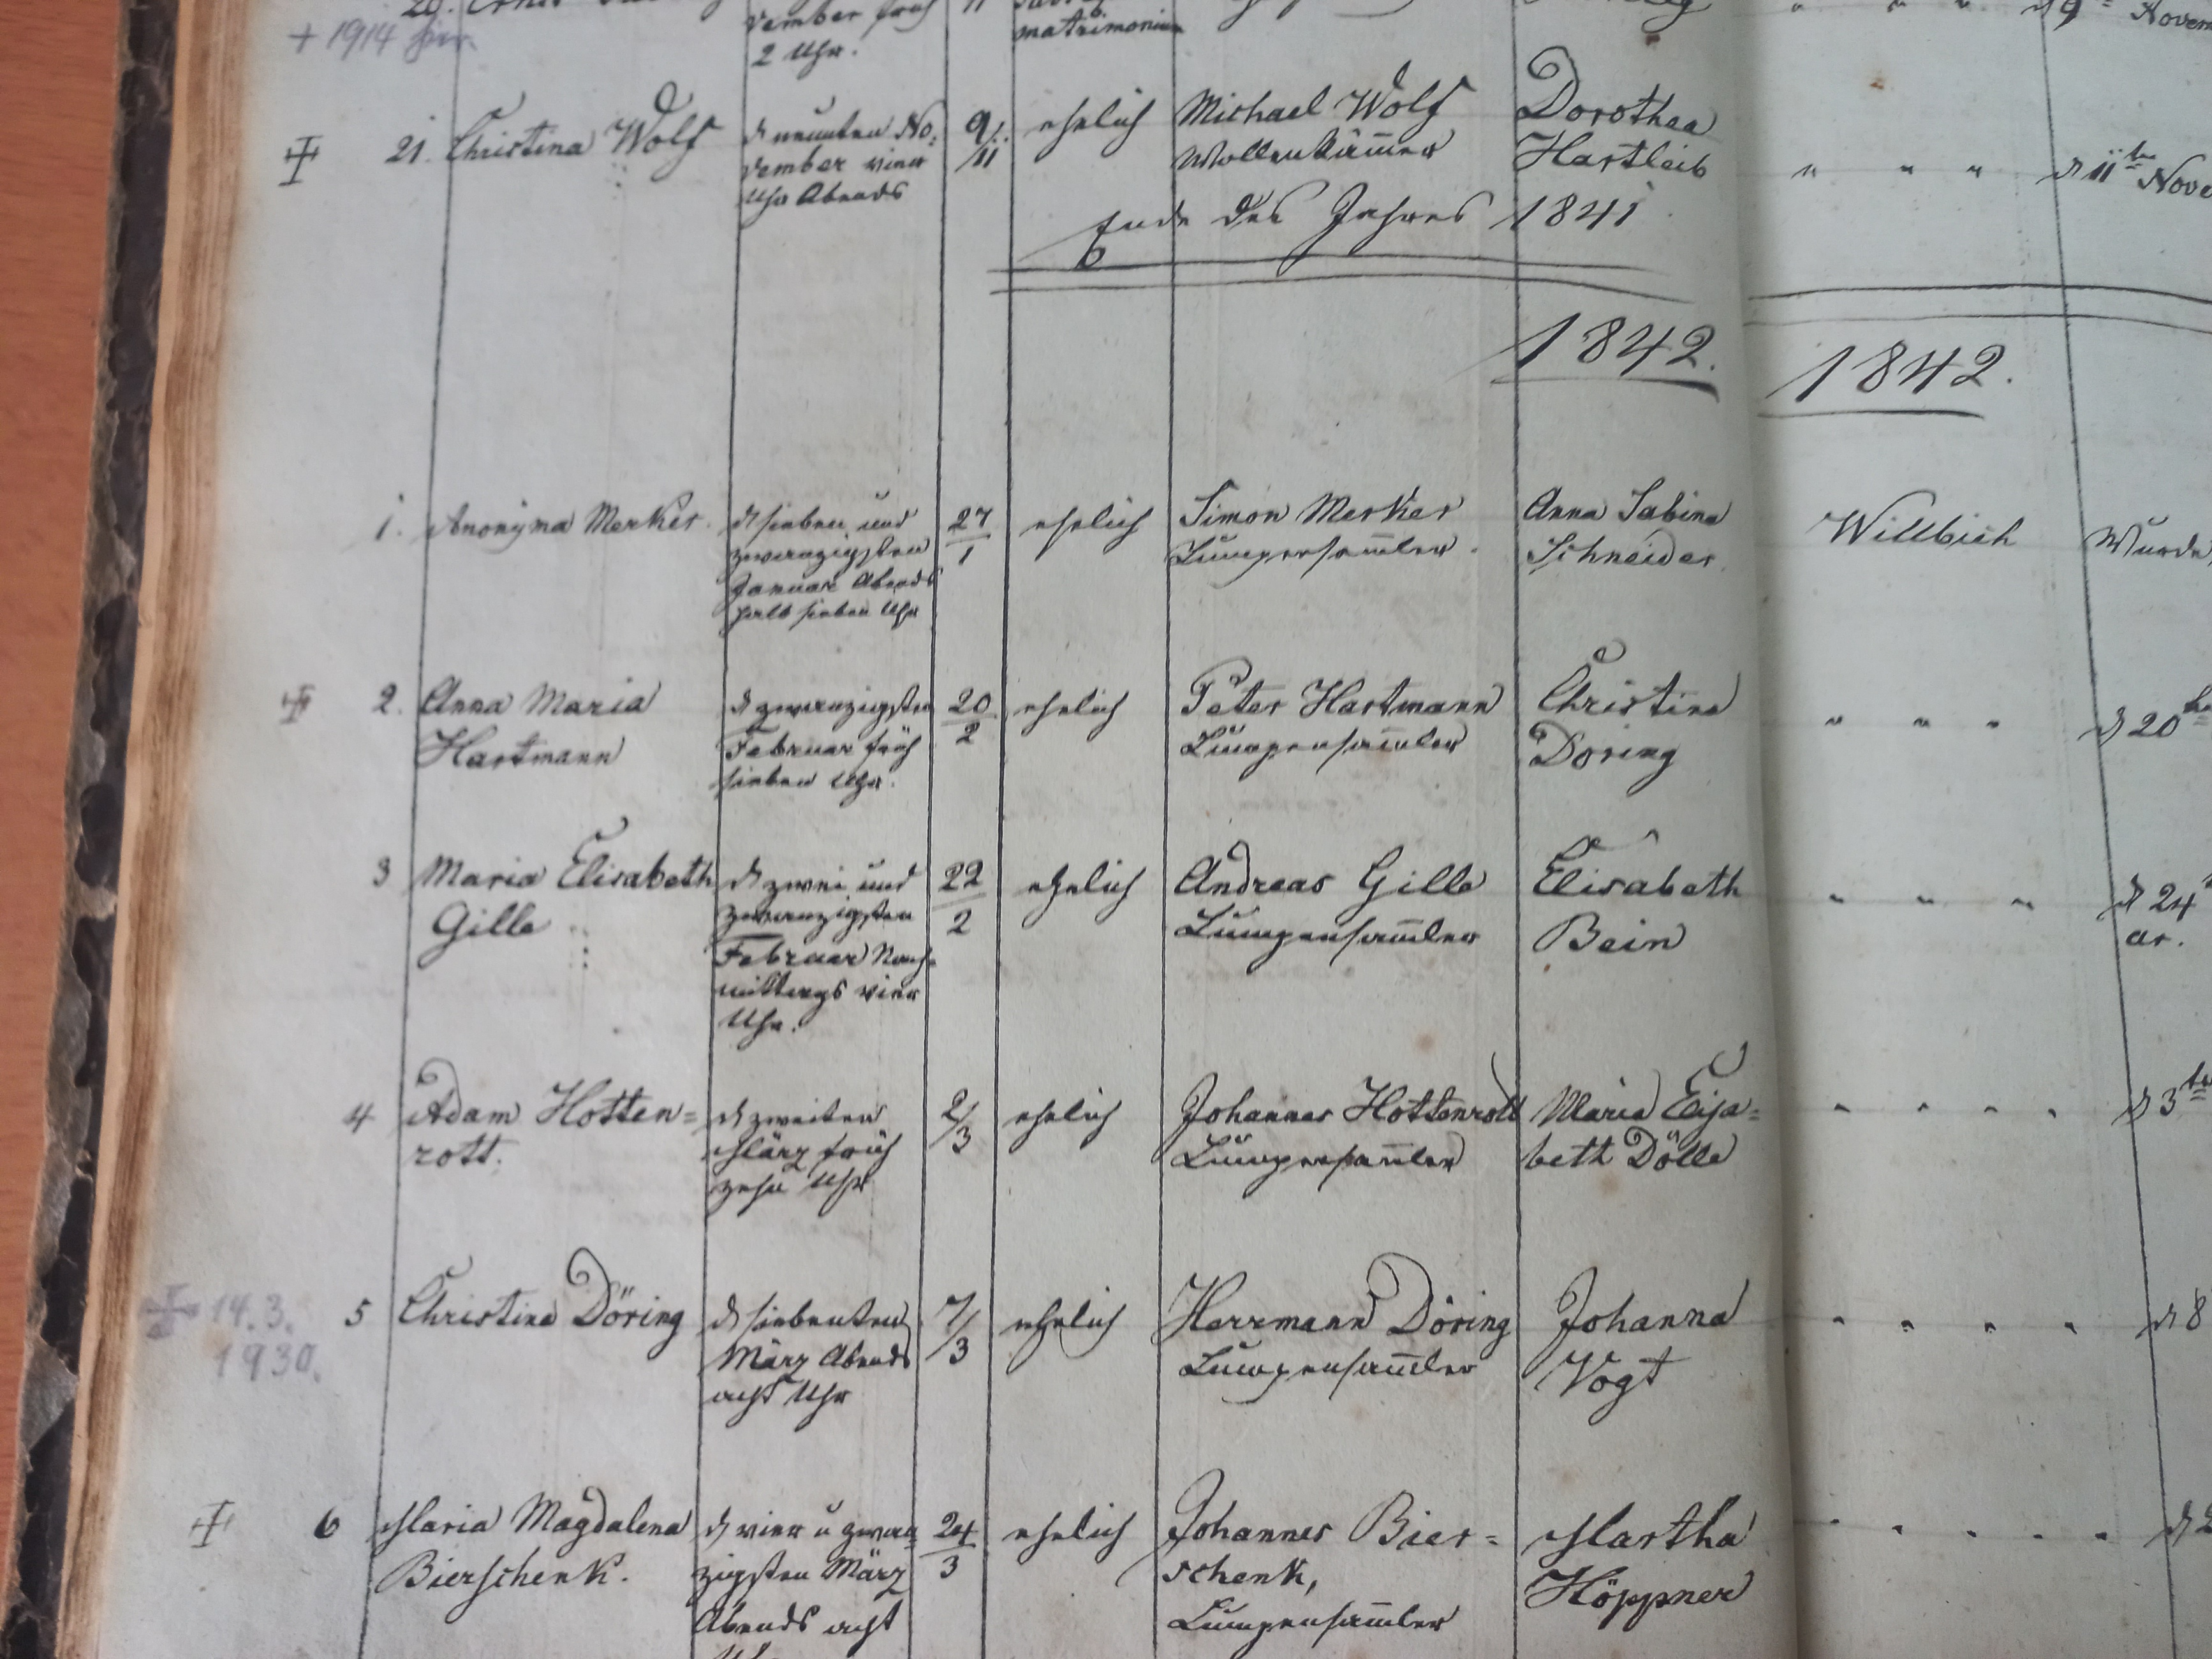 vember früh
2 Uhr.
matrimonium
+ 1914
21. Christina Wolf
d neunten No:
vember vier
Uhr Abends
9/11
ehelich
Michael Wolf
Wollenkämmer
Dorothea
Hartleib
" " " d 11te Nove
Ende des Jahres 1841
1842.
1842.
1. Anonyma Merker.
d sieben und
zwanzigsten
Januar Abends
halb sieben Uhr
27/1
ehelich
Simon Merker
Lumpensammler.
Anna Sabina
Schneider
Willbich
Wurde
2. Anna Maria
Hartmann
d zwanzigsten
Februar früh
sieben Uhr.
20/2
ehelich
Peter Hartmann
Lumpensammler
Christina
Döring
" " " d 20te
3 Maria Elisabeth
Gille
d zwei und
zwanzigsten
Februar Nach=
mittags vier
Uhr.
22/2
ehelich
Andreas Gille
Lumpensammler
Elisabeth
Bein
" " " d 24
ar.
4 Adam Hotten=
rott.
d zweiten
März früh
zehn Uhr
2/3
ehelich
Johannes Hottenrott
Lumpensammler
Maria Elisa=
beth Dölle
" " " " d 3te
14.3.
1930.
5 Christina Döring
d siebenten
März Abends
acht Uhr
7/3
ehelich
Herrmann Döring
Lumpensammler
Johanna
Vogt
" " " " d 8
6 Maria Magdalena
Bierschenk.
d vier u zwan=
zigsten März
Abends acht
24/3
ehelich
Johannes Bier=
schenk,
Lumpensammler
Martha
Höppner
" " " " " d 2